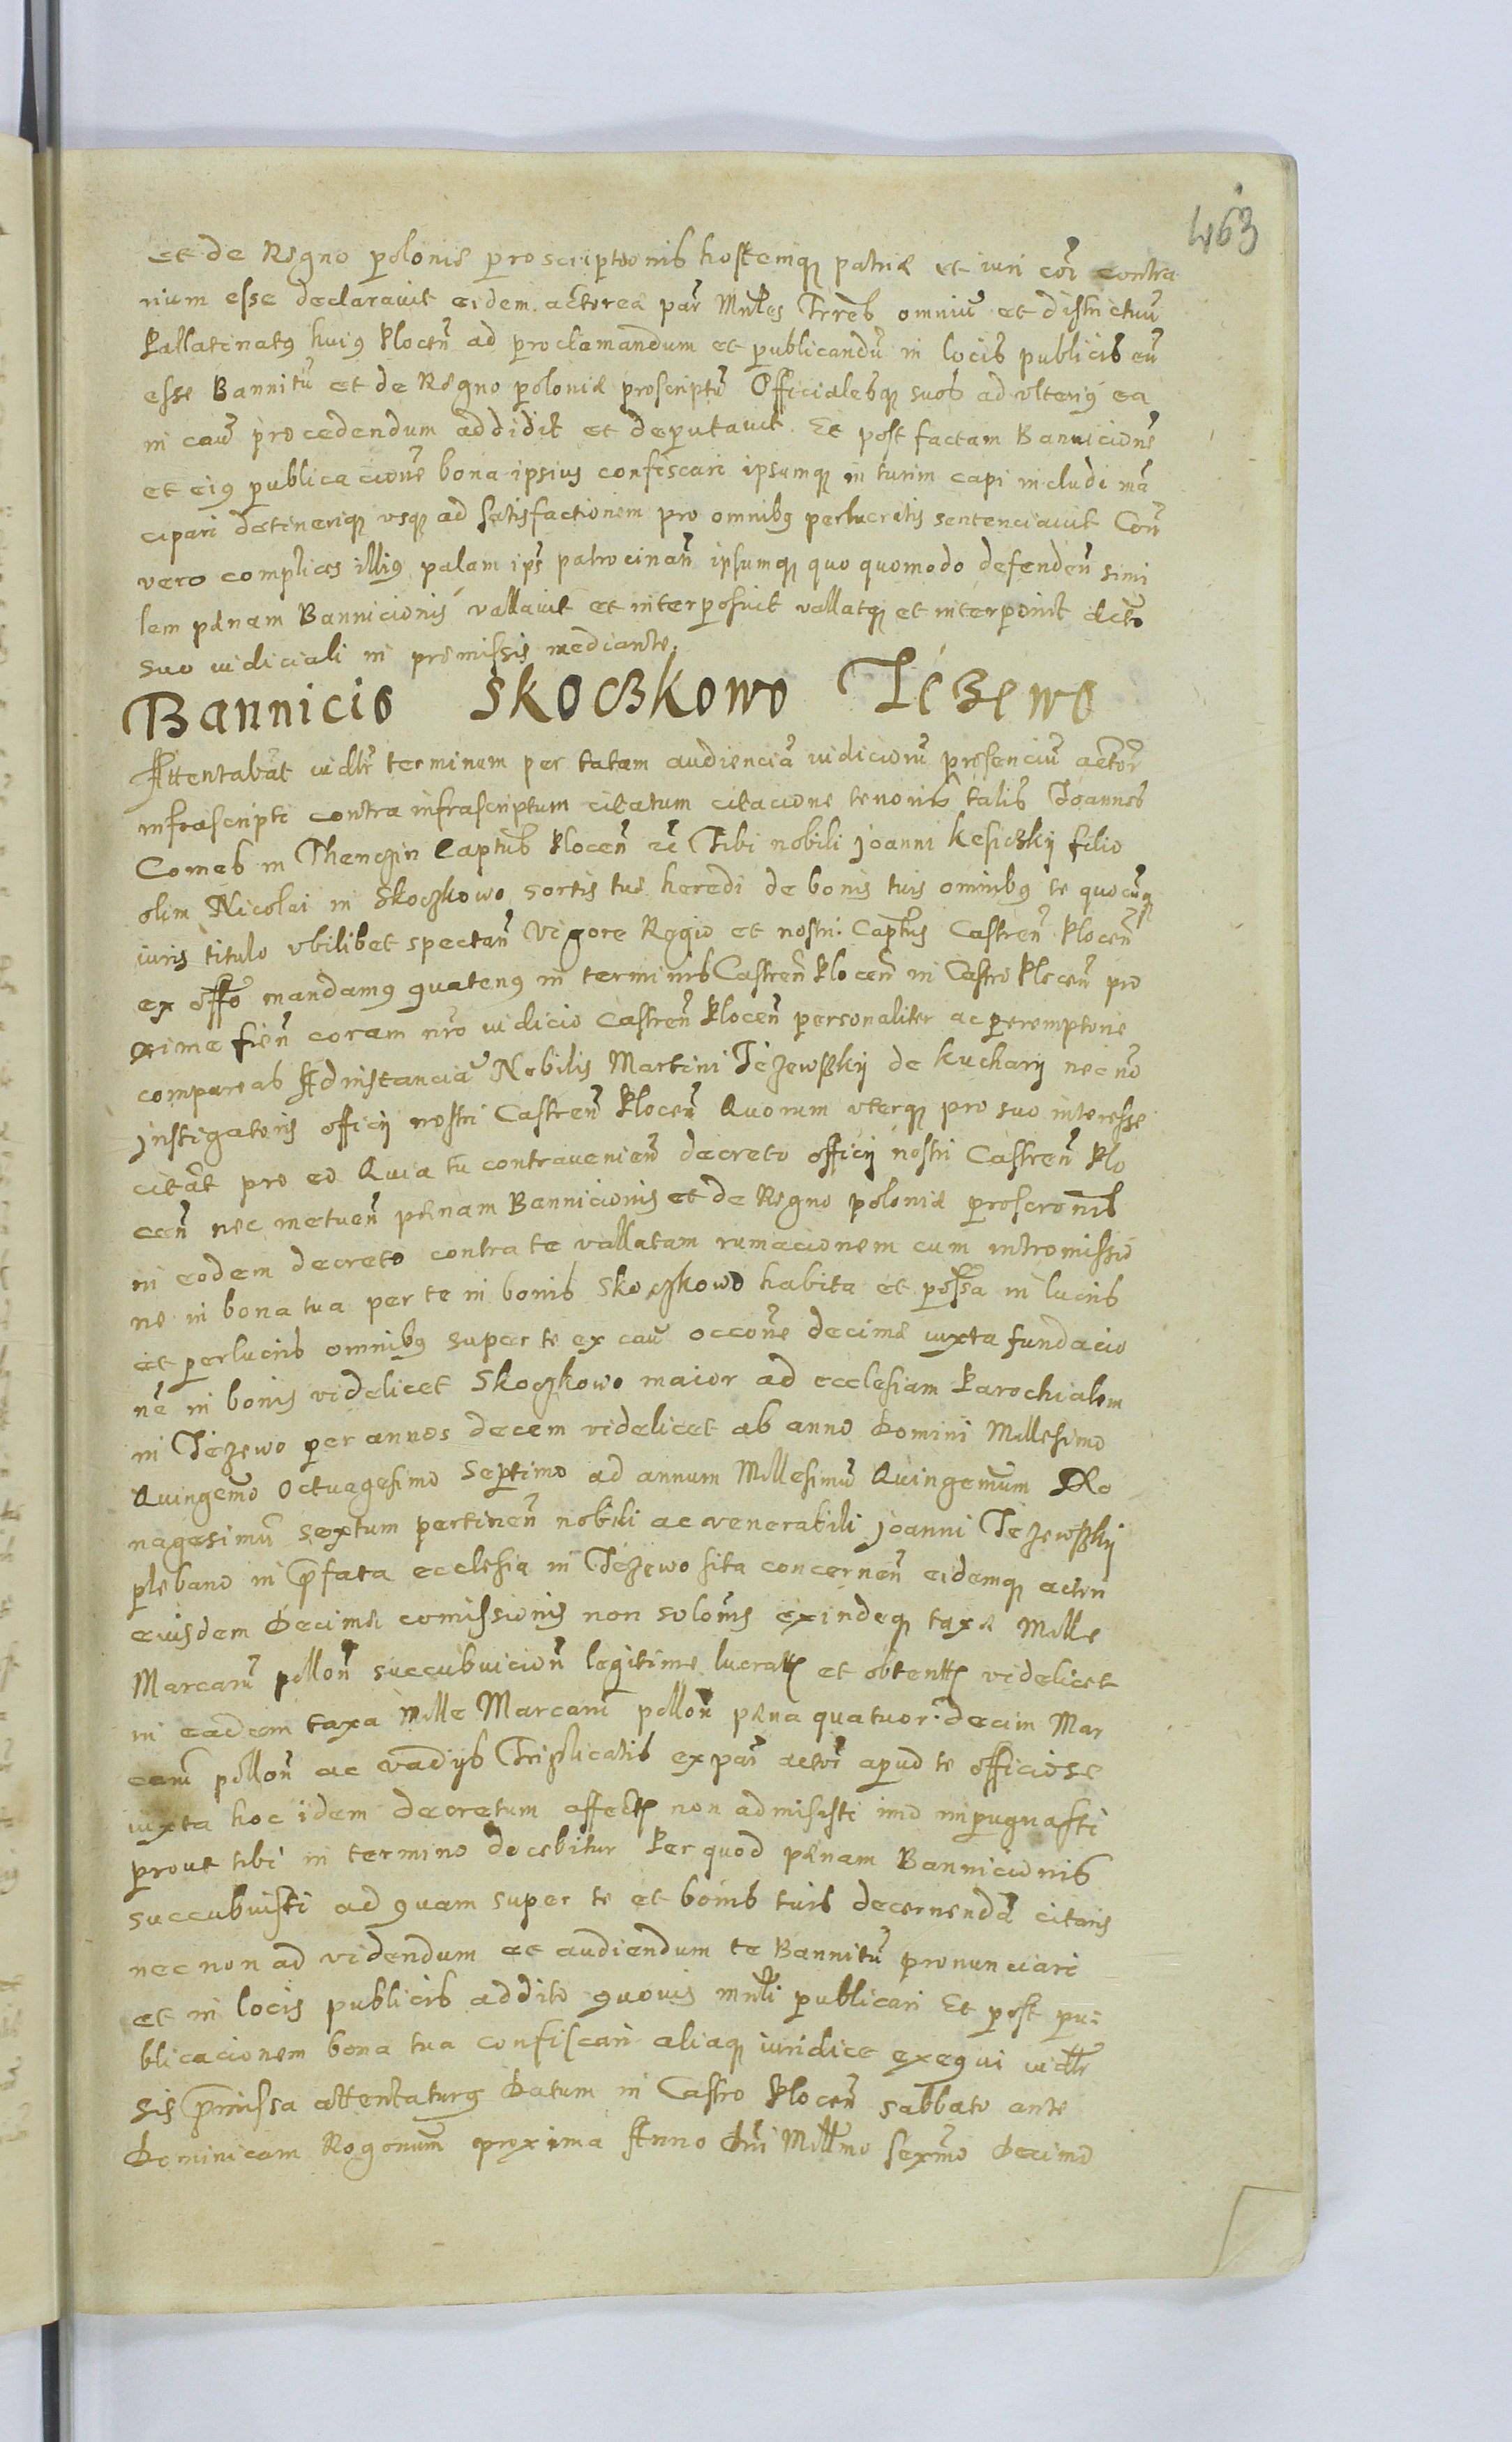 463
et de Regno polonie proscriptionis hostemq patriæ et iuri coi contra
rium esse declaravit eidem actorea par Mnles Trreb omniu et districtuu
Pallatinatq huiq Plocen ad proclamandum et publicandu in locis publicis eu
esse Bannitu et de Regno poloniæ proscriptu Officialesq suos ad vlteriq ea
in cau procedendum addidit et deputavit. Et post factam Bannicione
et eiq publicacione bona ipsius confiscari ipsumq in turim capi includi ma
cipari detineriq vsq ad satisfactionem pro omnibq perlucratis sentenciavit Con
vero complices illiq palam ips patrocinan ipsumq quo quomodo defenden simi
lem pænam Bannicionis vallavit et interposuit vallatq et interponit decto
suo iudiciali in premissis mediante.
Bannicio Skoczkowo Téżewo
Attentabat iudtr terminum per totam audiencia iudicioru presenciu actor
infrascripti contra infrascriptum citatum citacione tenoris talis Joannes
Comes in Thenczin Captus Plocen rc Tibi nobili Joanni Kesiczkij filio
olim Nicolai in Skoczkowo sortis tuæ heredi de bonis tuis omnibq te quocuq
iuris titulo vbilibet spectan Vigore Regio et nostri Captus Castren Plocen
ex offo mandamq quatenq in terminis Castren Plocen in Castro Plocen pro
xime fien coram nro iudicio Castren Plocen personaliter ac peremptorie
compareas Ad instancia Nobilis Martini Téżewskij de Kucharij necno
Instigatoris officij nostri Castren Plocen Quorum vterq pro suo interesse
citat pro eo Quia tu contravenien decreto officij nostri Castren Plo
cen nec metuen pænam Bannicionis et de Regno poloniæ proscronis
in eodem decreto contra te vallatam rumacionem cum intromissio
ne in bona tua per te in bonis Skoczkowo habita et possa in lucris
et perlucris omnibq super te ex cau occone decimæ iuxta fundacio
ne in bonis videlicet Skoczkowo maior ad ecclesiam Parochialem
in Téżewo per annos decem videlicet ab anno Domini Millesimo
Quingemo Octuagesimo Septimo ad annum Millesimu Quingemum No
nagesimu sextum pertinen nobili ac venerabili Joanni Téżewskij
plebano in prefata ecclesia in Téżewo sita concernen eidemq actori
eiusdem Decimæ comissionis non solonis exindeq taxæ Mille
Marcaru pollon succubuicion legitime lucratt et obtentt videlicet
in eadem taxa Mille Marcaru pollon pæna quatuor decim Mar
caru pollon ac vadijs Triplicatis ex par actor apud te officiose
iuxta hoc idem decretum affectt non admisisti imo impugnasti
prout tibi in termino docebitur Per quod pænam Bannicionis
succubuisti ad quam super te et bonis tuis decernenda citaris
nec non ad videndum et audiendum te Bannitu pronunciari
et in locis publicis addito quovis mnli publicari Et post pu:
blicacionem bona tua confiscari aliaq iuridice exequi iudtr
sis premissa attentaturq Datum in Castro Plocen sabbato ante
Dominicam Rogonum proxima Anno Dni Millmo Sexmo Decimo